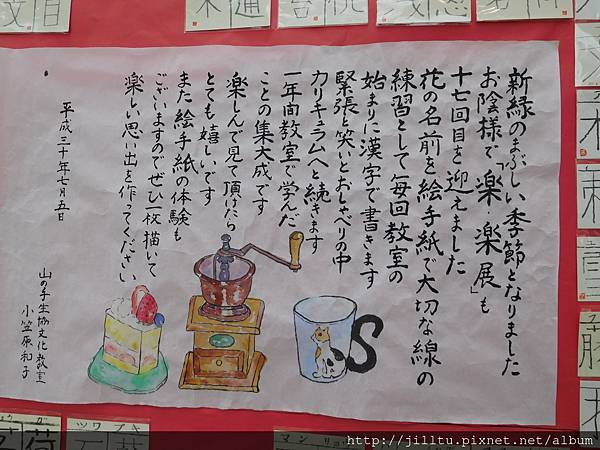 新緑のまぶしい季節となりました
お陰様で「楽・楽展」も
十七回目を迎えました
花の名前を絵手紙で大切な線の
練習として毎回教室の
始まりに漢字で書きます
緊張と笑いとおしゃべりの中
カリキュラムへと続きます
一年間教室で学んだ
ことの集大成です
楽しんで見て頂けたら
とても嬉しいです
また絵手紙の体験も
ございますのでぜひ一枚描いて
楽しい思い出を作ってください
平成三十年七月五日
山の手生協文化教室
小笠原和子
ツワブキ
荷
http://jilltu.pixnet.net/album